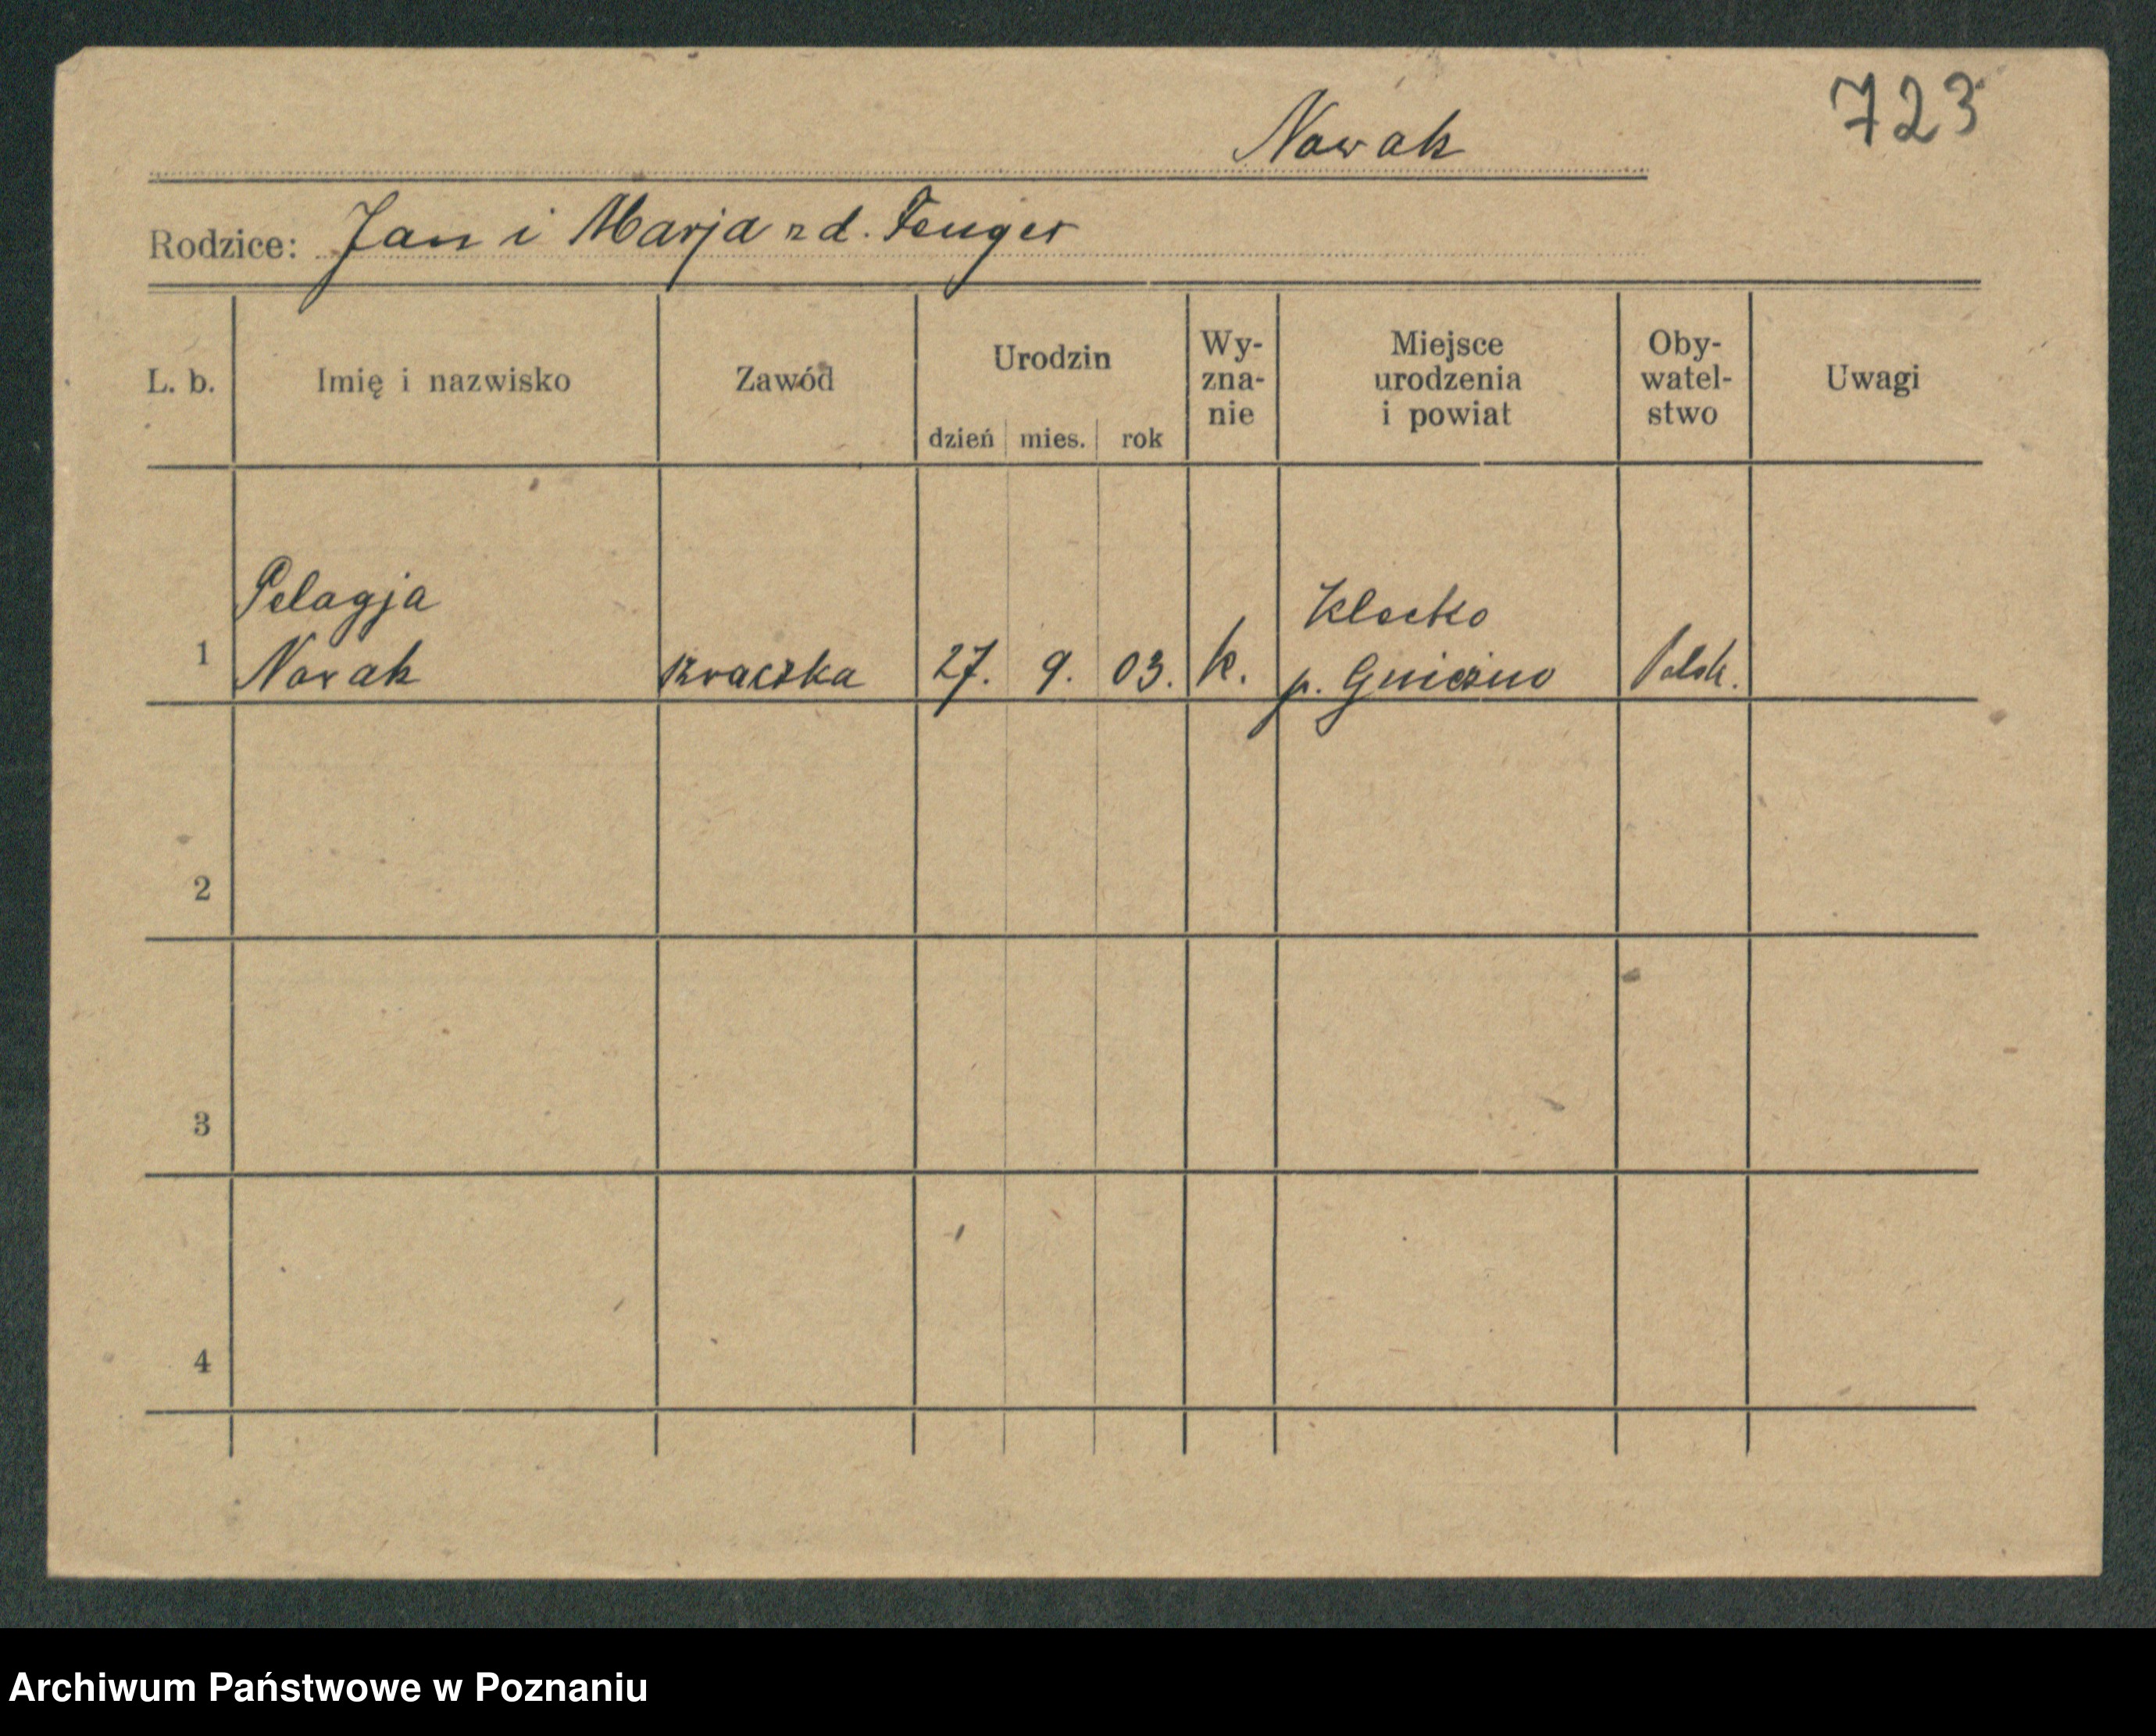 723
Nowak
Rodzice: Jan i Marja z d. Fenger
L. b. Imię i nazwisko Zawód Urodzin dzień mies. rok Wy-zna-nie Miejsce urodzenia i powiat Oby-watel-stwo Uwagi
Pelagja Klecko
1 Nowak Kraczka 27. 9. 03. k. p. Gniezno Polsk.
2
3
4
Archiwum Państwowe w Poznaniu